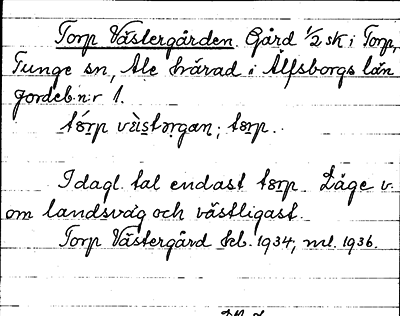 Torp Västergården. Gård 1/2 sk i Torp,
Tunge sn, Ale härad i Älfsborgs län
Jordeb.n:r 1.
tɵrp vàstərgan; tɵrp.
I dagl. tal endast tɵrp. Läge v.
om landsväg och västligast.
Torp Västergård kb. 1934, ml. 1936.